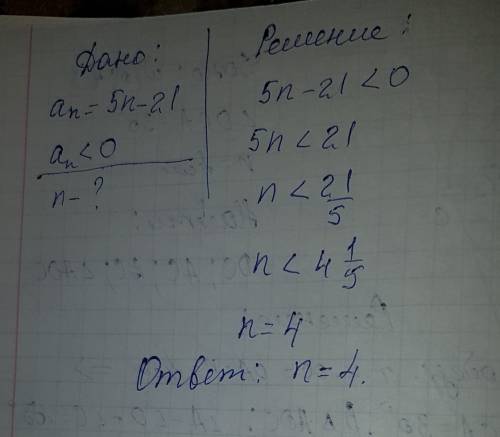 Дано:
aₙ = 5n - 21
aₙ < 0
n - ?
Решение:
5n - 21 < 0
5n < 21
n < 21/5
n < 4 1/5
n = 4
Ответ: n = 4.